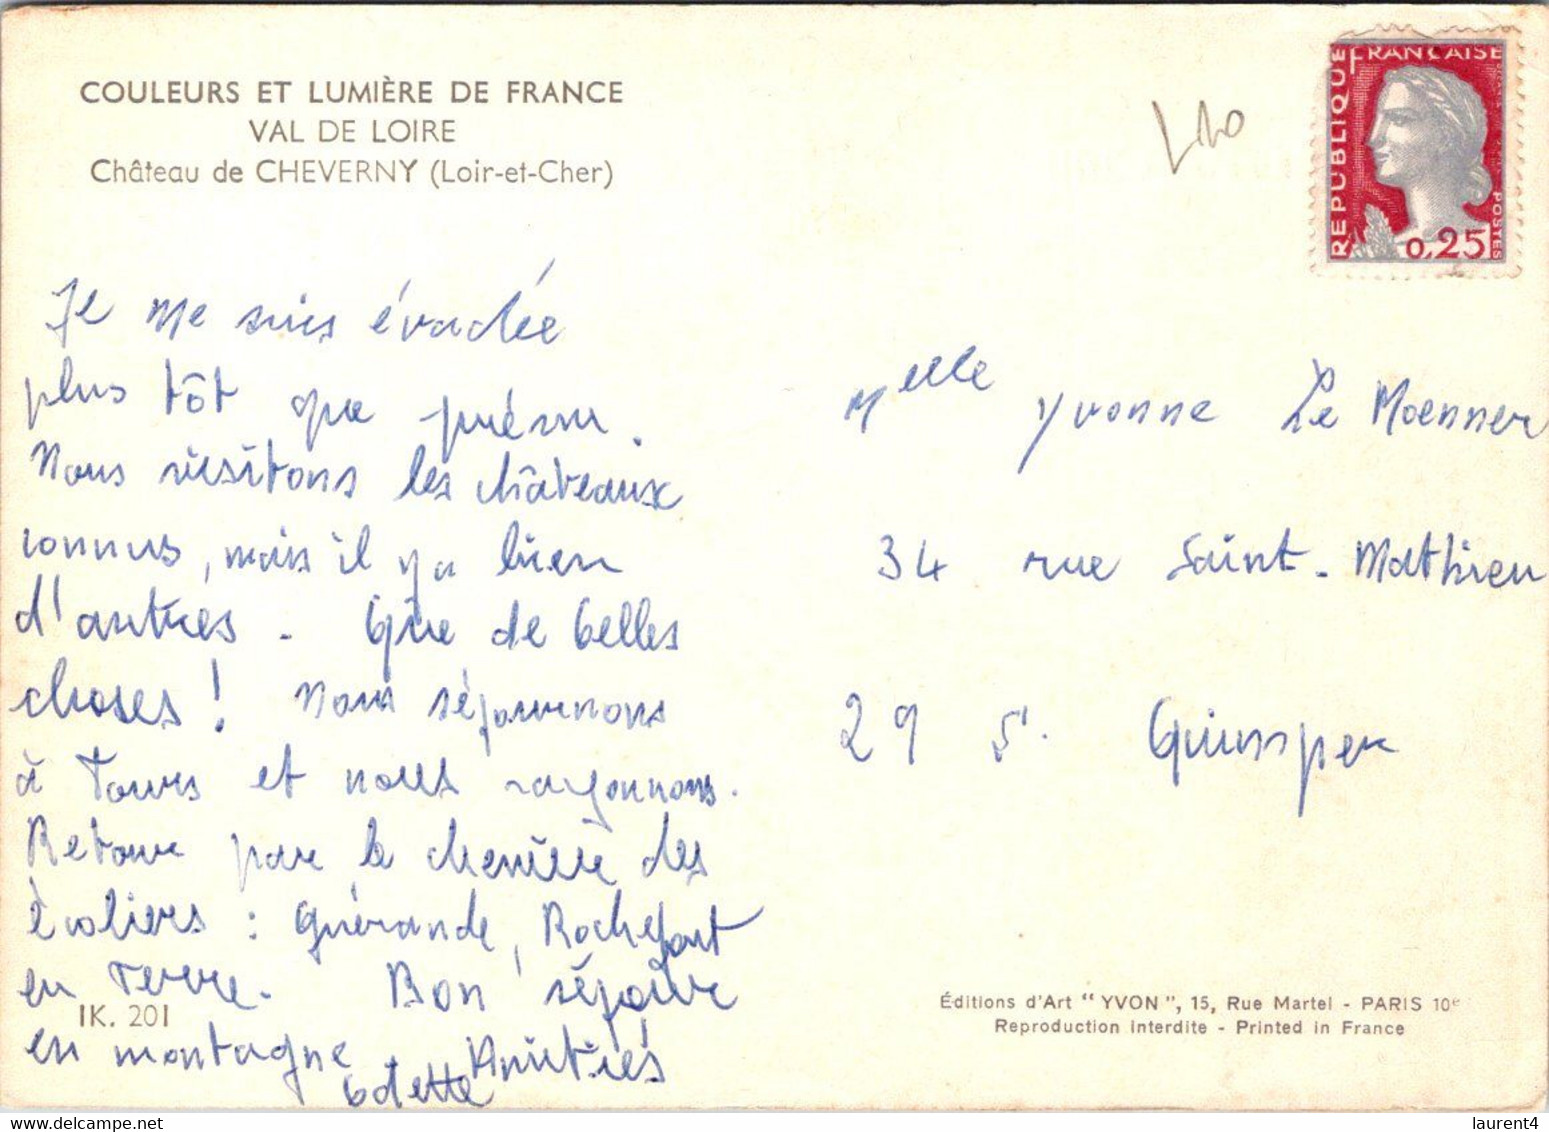 COULEURS ET LUMIÈRE DE FRANCE
VAL DE LOIRE
Château de CHEVERNY (Loir-et-Cher)
RÉPUBLIQUE FRANÇAISE
POSTES
0,25
Je me suis évadée
plus tôt que prévu.
Nous visitons les châteaux
connus, mais il y a bien
d'autres. Que de belles
choses ! Nous séjournons
à Tours et nous rayonnons.
Retour par le des
écoliers : Guérande, Rochefort
en Terre. Bon séjour
en montagne Amitiés
Odette
Melle Yvonne Le Moenner
34 rue Saint-Mathieu
29 S. Quimper
IK. 201
Éditions d'Art "YVON", 15, Rue Martel - PARIS 10e
Reproduction Interdite - Printed in France
laurent4